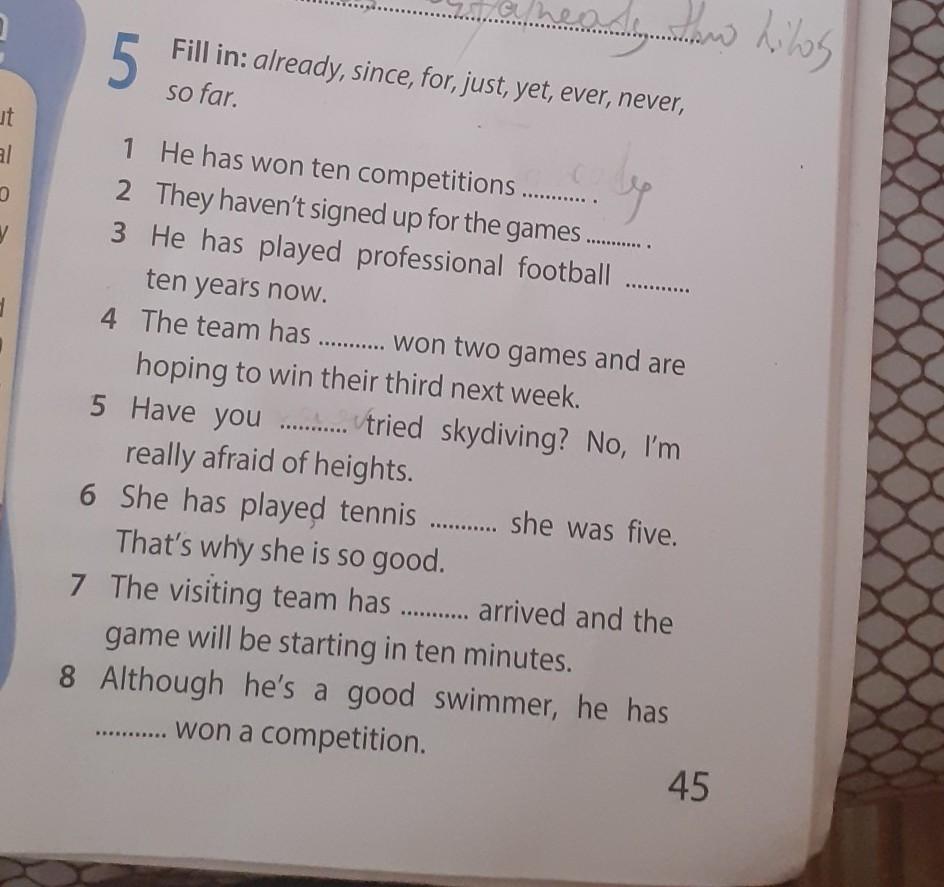 already two kilos
ut
al
o
y
5 Fill in: already, since, for, just, yet, ever, never,
so far.
1 He has won ten competitions ........... .
2 They haven't signed up for the games ........... .
3 He has played professional football ...........
ten years now.
4 The team has ........... won two games and are
hoping to win their third next week.
5 Have you ........... tried skydiving? No, I'm
really afraid of heights.
6 She has played tennis ........... she was five.
That's why she is so good.
7 The visiting team has ........... arrived and the
game will be starting in ten minutes.
8 Although he's a good swimmer, he has
........... won a competition.
45